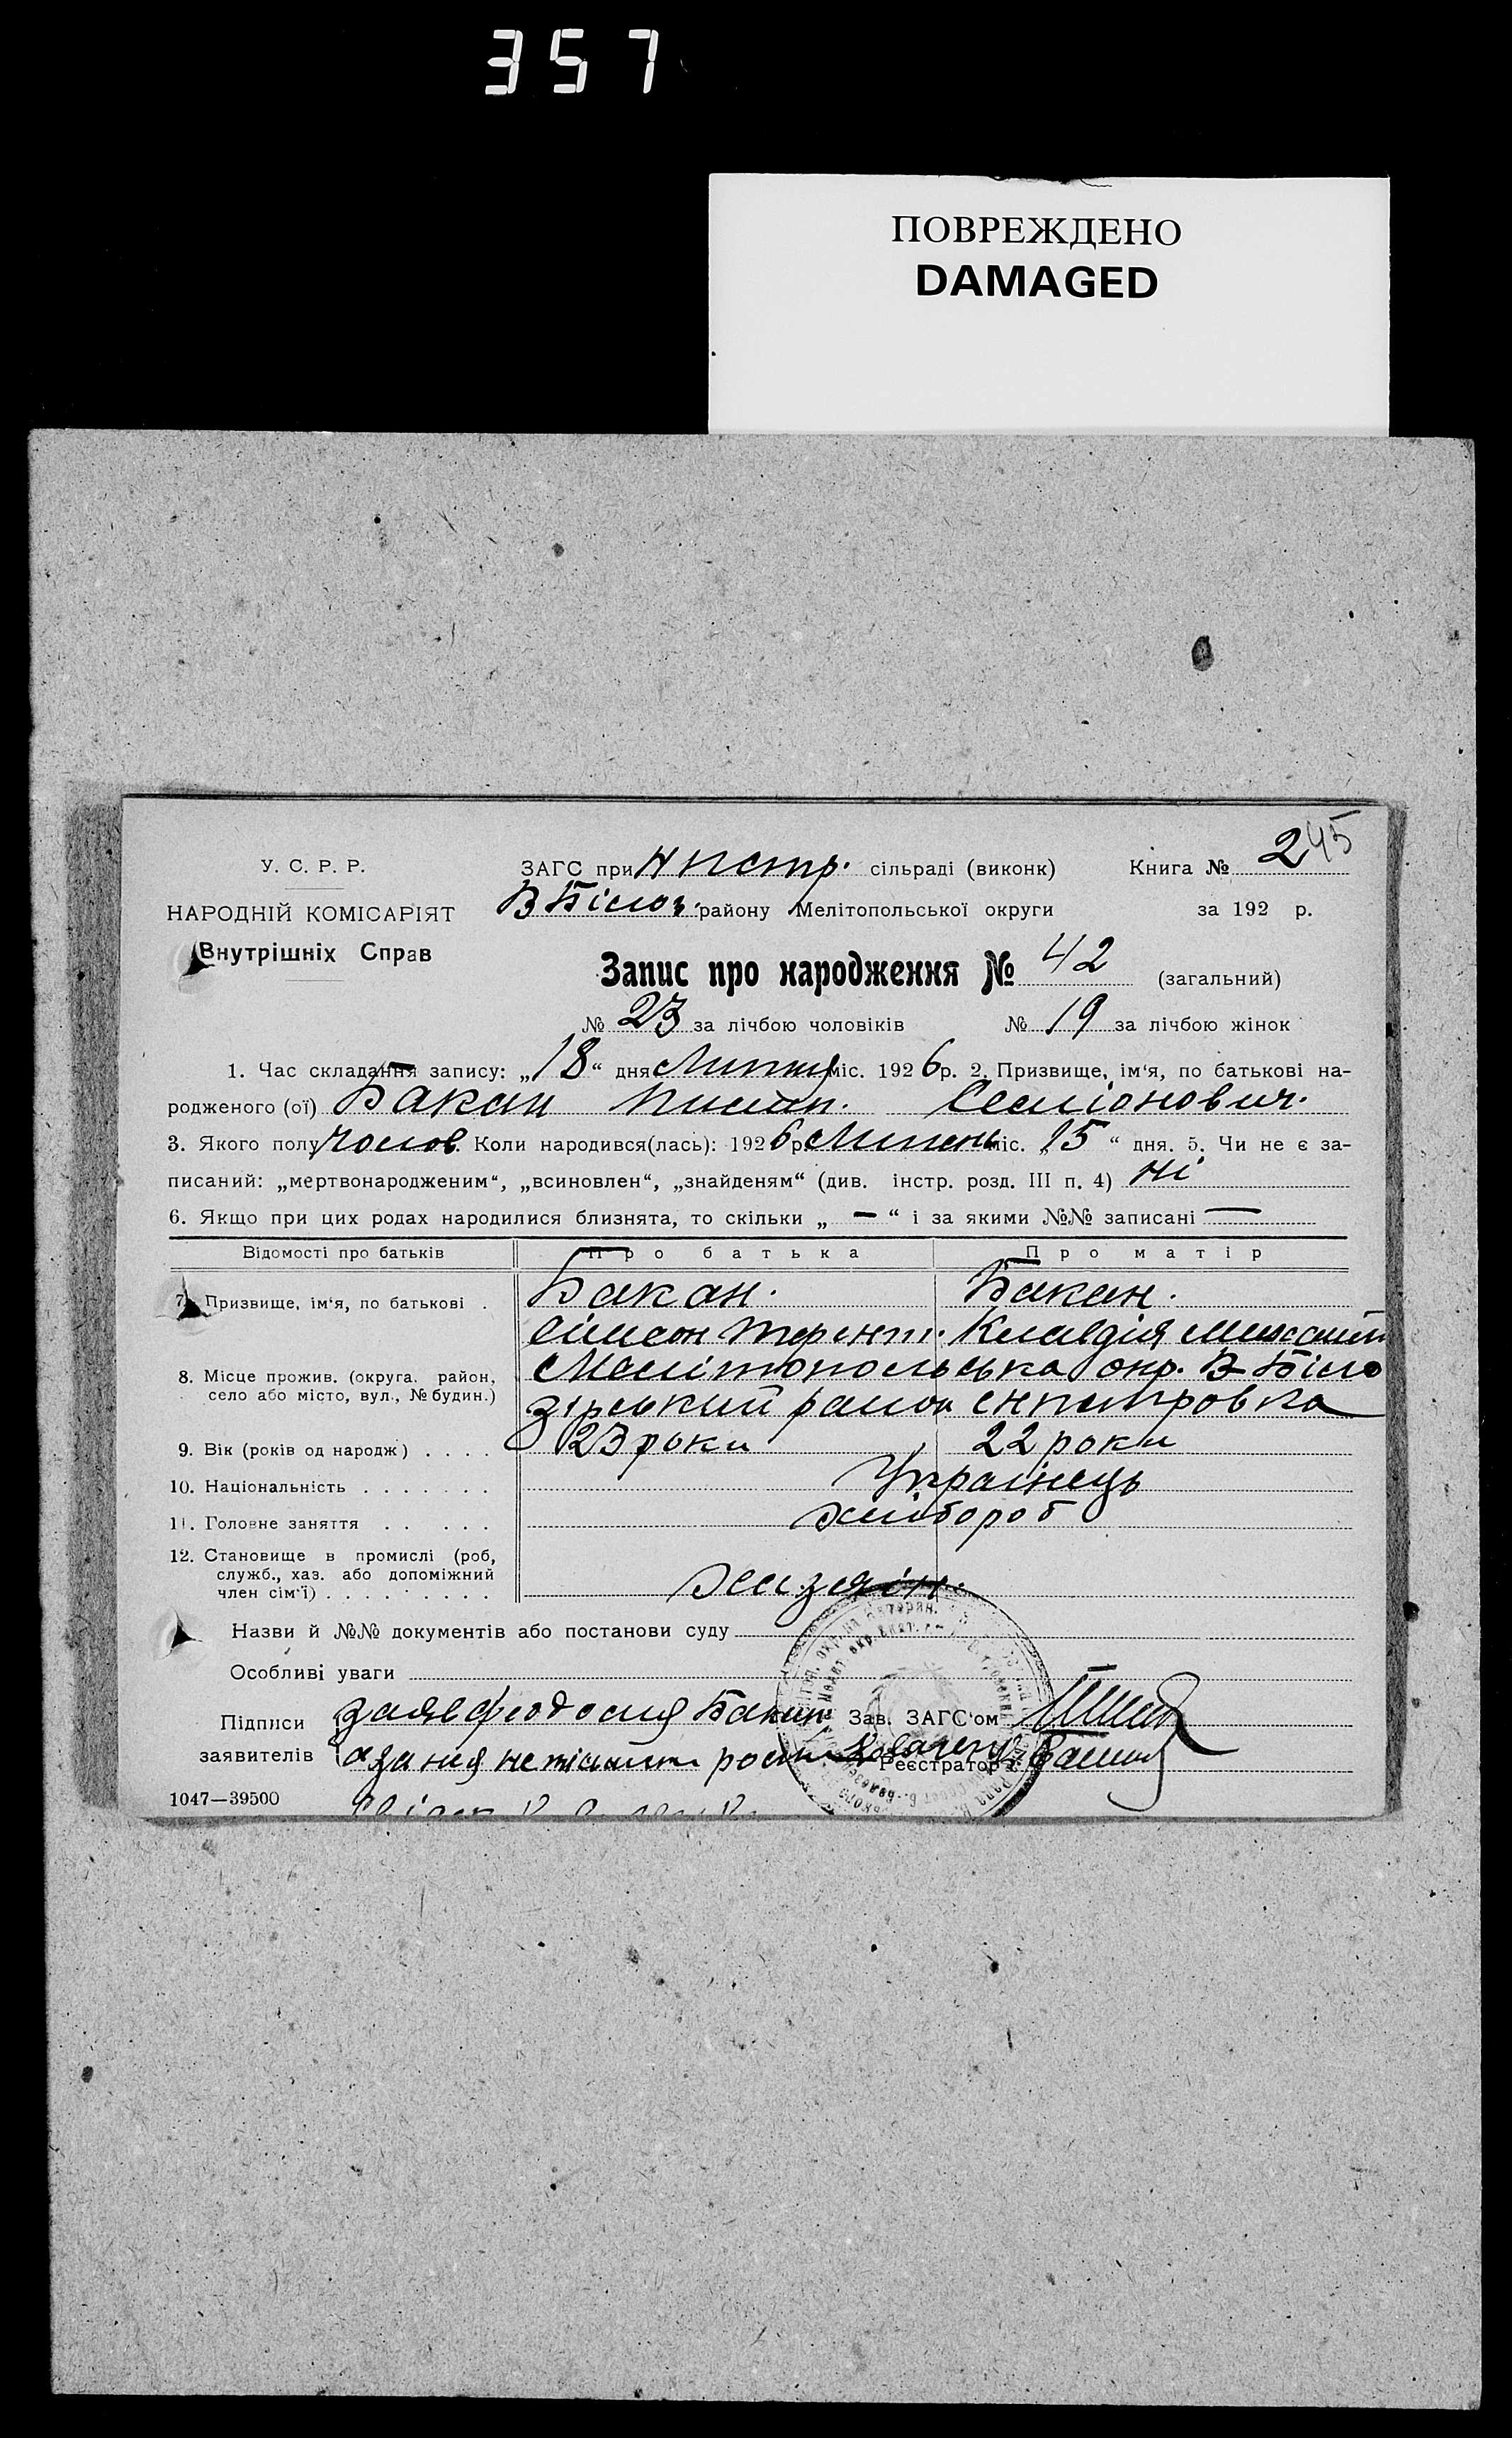 357
ПОВРЕЖДЕНО
DAMAGED
245
У. С. Р. Р.
ЗАГС при Н Пстр. сільраді (виконк) Книга № 2
НАРОДНІЙ КОМІСАРІЯТ
В Білоз. району Мелітопольської округи за 192 р.
Внутрішніх Справ
Запис про народження № 42 (загальний)
№ 23 за лічбою чоловіків № 19 за лічбою жінок
1. Час складання запису: „18“ дня Липня міс. 1926 р. 2. Призвище, ім‘я, по батькові на-
родженого (ої) Бакан Семіонович.
3. Якого полу чолов. Коли народився(лась): 1926 р. Липень міс. „15“ дня. 5. Чи не є за-
писаний: „мертвонародженим“, „всиновлен“, „знайденям“ (див. інстр. розд. III п. 4) Ні
6. Якщо при цих родах народилися близнята, то скільки „ — “ і за якими №№ записані —
Відомості про батьків Про батька Про матір
7. Призвище, ім‘я, по батькові . Бакан. Бакан.
Сімеон Терент. Клавдія Михайл
8. Місце прожив. (округа. район, Мелітопольська окр. В-Біло
село або місто, вул., № будин.) зірський район с Нпетровка
9. Вік (років од народж) . . . . 23 роки 22 роки
10. Національність . . . . . . . Українець
11. Головне заняття . . . . . хлібороб
12. Становище в промислі (роб,
служб., хаз. або допоміжний
член сім‘ї) . . . . . . . . . хазяін.
Назви й №№ документів або постанови суду
Особливі уваги
Підписи заяв Феодосия Бакан Зав. ЗАГС‘ом
заявителів а за нея Реєстратор
1047—39500